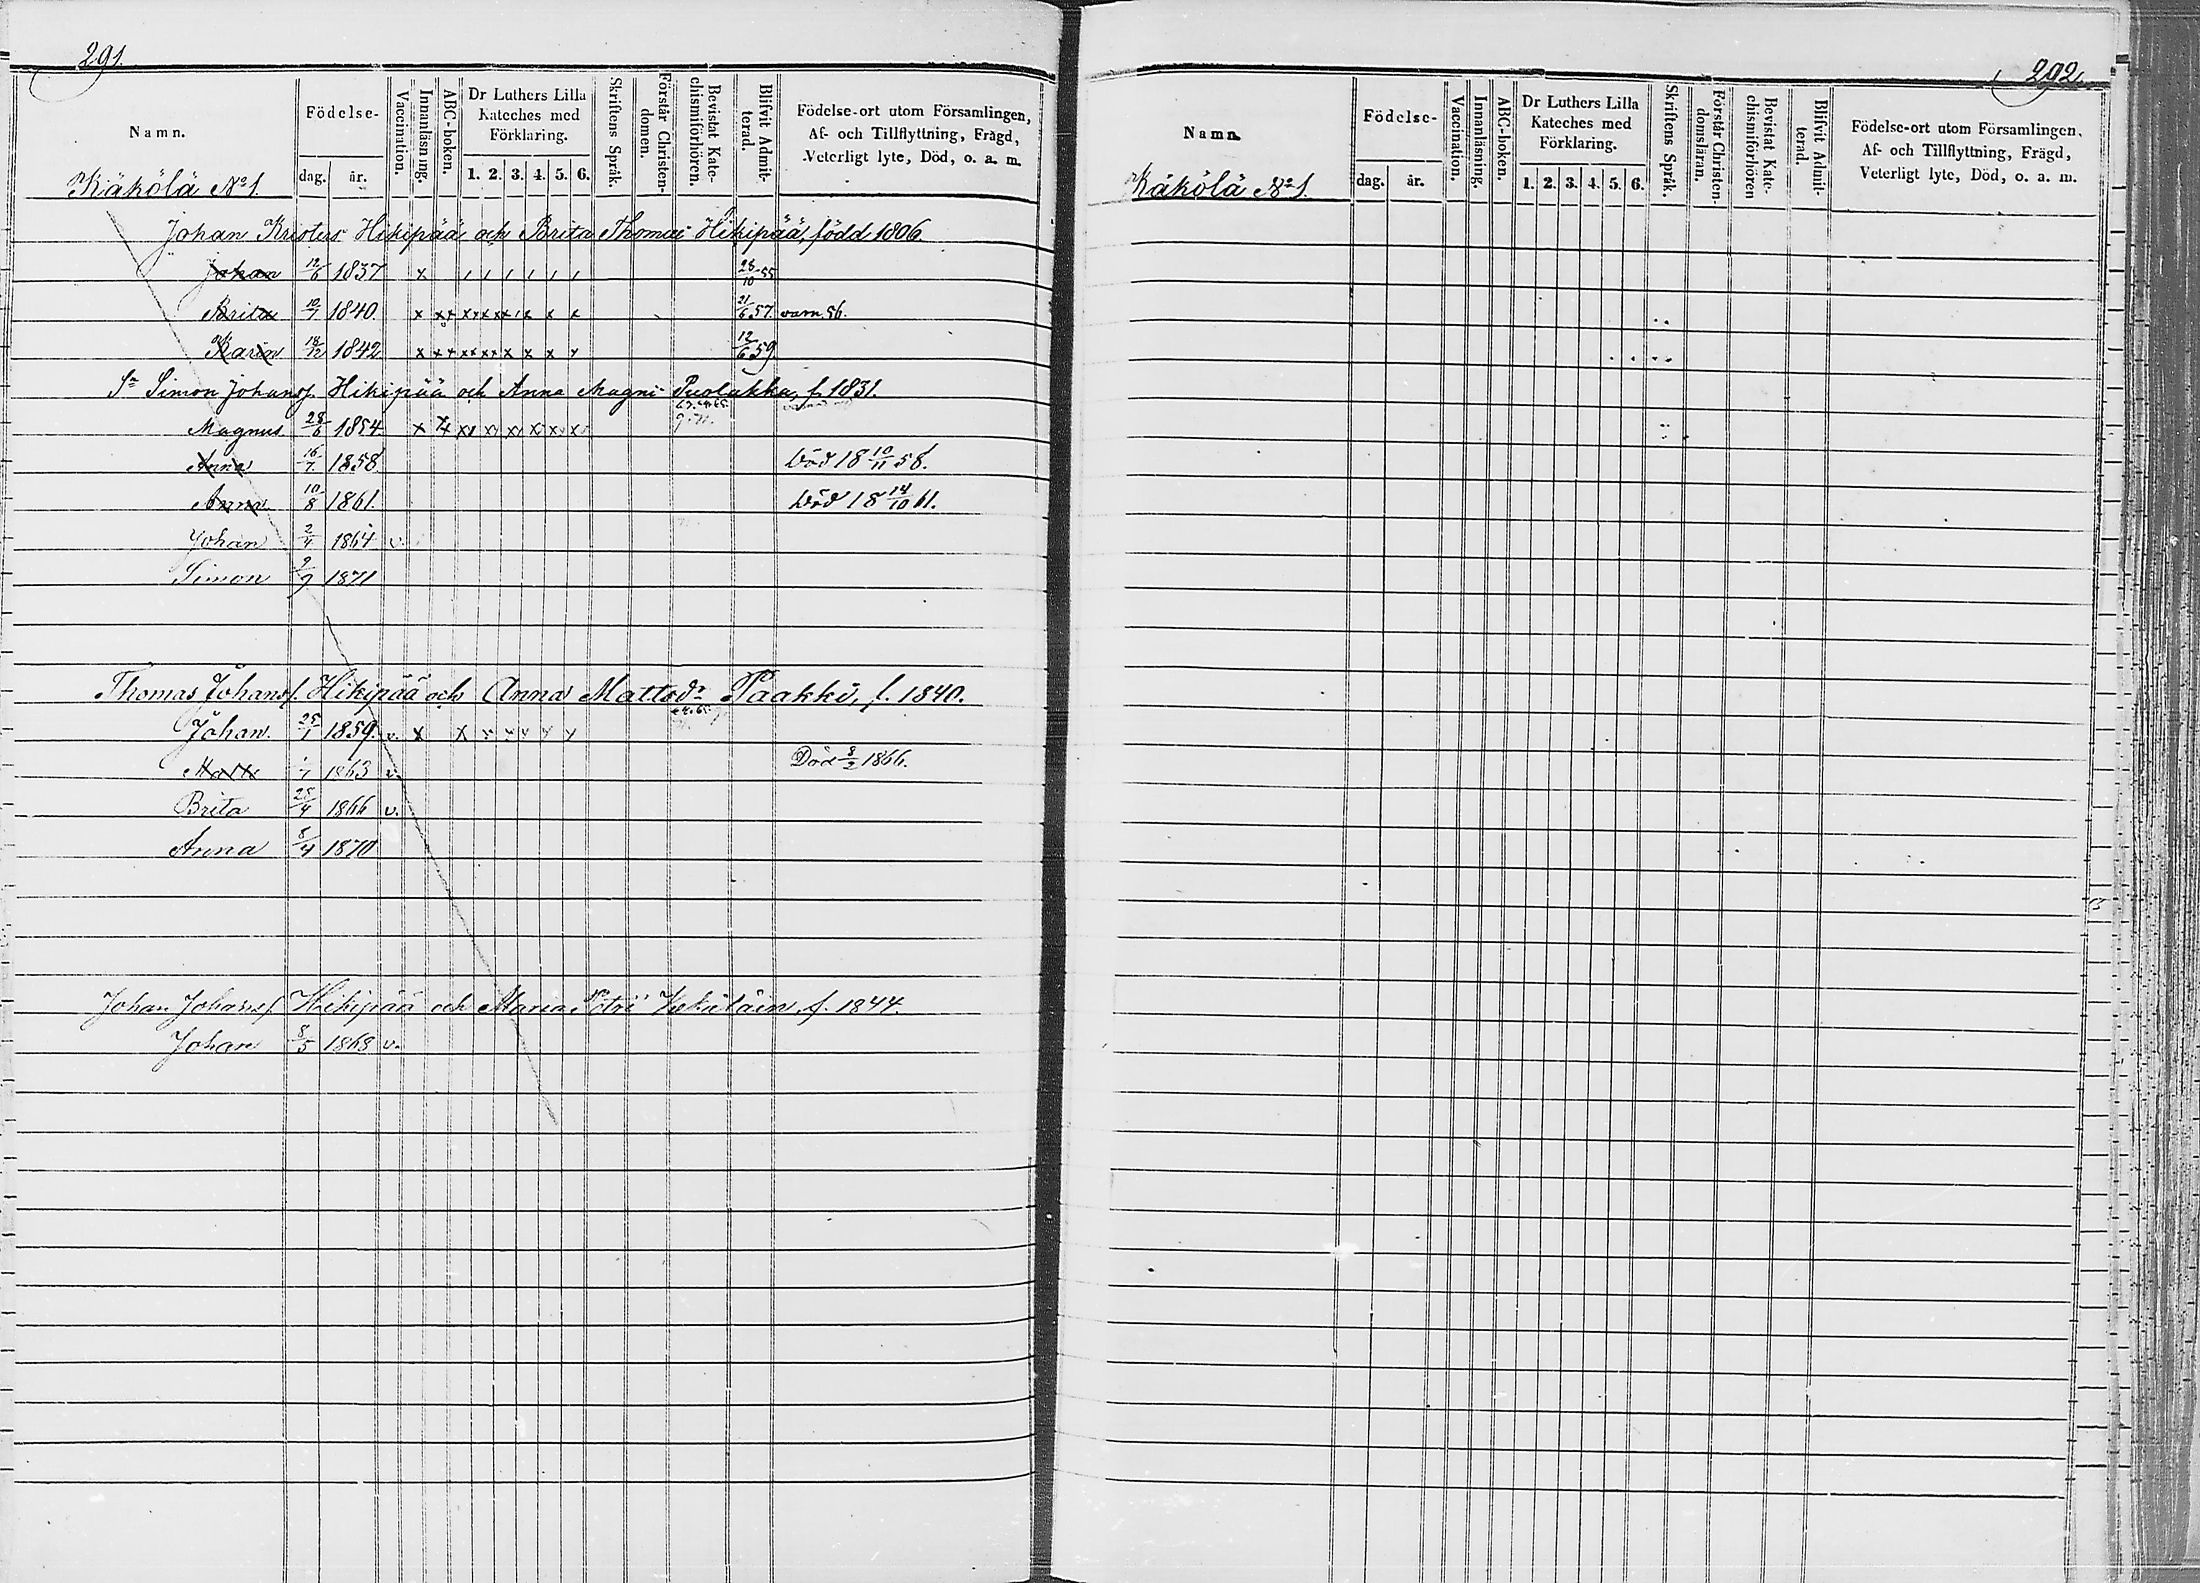 291.
Namn.
Födelse-
dag. år.
Vaccination.
Innanläsning.
ABC-boken.
Dr Luthers Lilla Kateches med Förklaring.
1. 2. 3. 4. 5. 6.
Skriftens Språk.
Förstår Christendomen.
Bevistat Katechismiförhören.
Blifvit Admitterad.
Födelse-ort utom Församlingen, Af- och Tillflyttning, Frägd, Veterligt lyte, Död, o. a. m.
Käkölä No 1.
Johan Kristers Hikipää och Brita Thomas Hikipää, född 1806.
Johan 12/6 1837 x 28/10 55
Brita 10/7 1840. 21/6 57. varn. 56.
Karin 18/12 1842 12/6 59
Sn Simon Johanss. Hikipää och Anna Magni Puolakka, f. 1831.
Magnus 28/6 1854
Anna 16/7 1858. Död 18 10/11 58.
Anna 10/8 1861. Död 18 14/10 61.
Johan 2/4 1864 v.
Simon 9/9 1871
Thomas Johanss. Hikipää och Anna Mattsdr Paakki, f. 1840.
Johan 25/1 1859. v. x x
Matts 1863 v. Död 8/2 1866.
Brita 28/4 1866 v.
Anna 8/4 1870
Johan Johanss. Hikipää och Maria f. 1844.
Johan 8/5 1868 v.
292.
Namn.
Födelse-
dag. år.
Vaccination.
Innanläsning.
ABC-boken.
Dr Luthers Lilla Kateches med Förklaring.
1. 2. 3. 4. 5. 6.
Skriftens Språk.
Förstår Christendomsläran.
Bevistat Katechismiförhören
Blifvit Admitterad.
Födelse-ort utom Församlingen, Af- och Tillflyttning, Frägd, Veterligt lyte, Död, o. a. m.
Käkölä No 1.